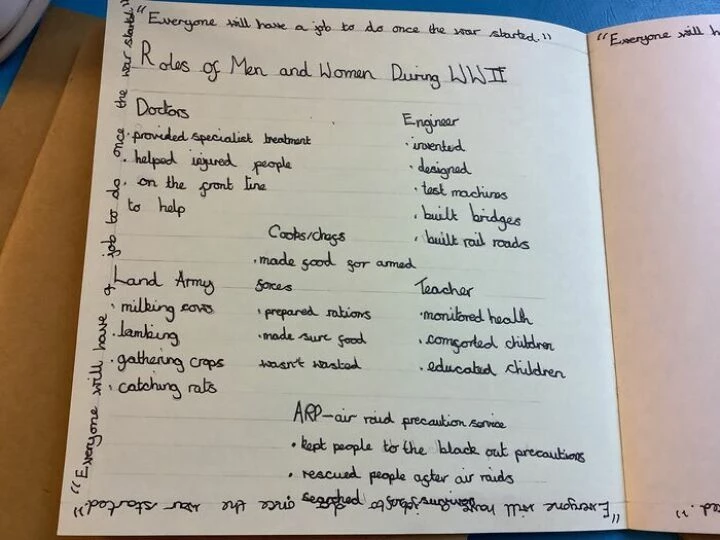 "Everyone will have a job to do once the war started."
Roles of Men and Women During WWII
Doctors
· provided specialist treatment
· helped injured people
· on the front line
to help
Engineer
· invented
· designed
· test machines
· built bridges
· built rail roads
Cooks/chefs
· made food for armed
forces
· prepared rations
· made sure food
wasn't wasted
Land Army
· milking cows
· lambing
· gathering crops
· catching rats
Teacher
· monitored health
· comforted children
· educated children
ARP-air raid precaution service
· kept people to the black out precautions
· rescued people after air raids
searched
"Everyone will have a job to do once the war started."
"Everyone will have a job to do once the war started."
"Everyone will h
ed."